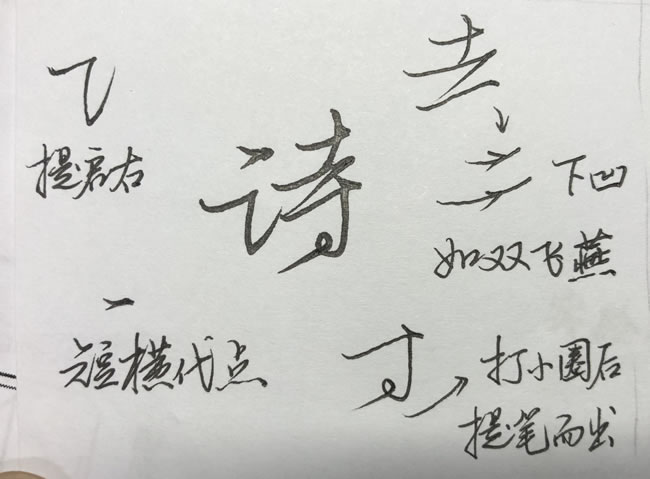 土
提启右
诗
下凹
如双飞燕
短横代点
寸
打小圈后
提笔而出